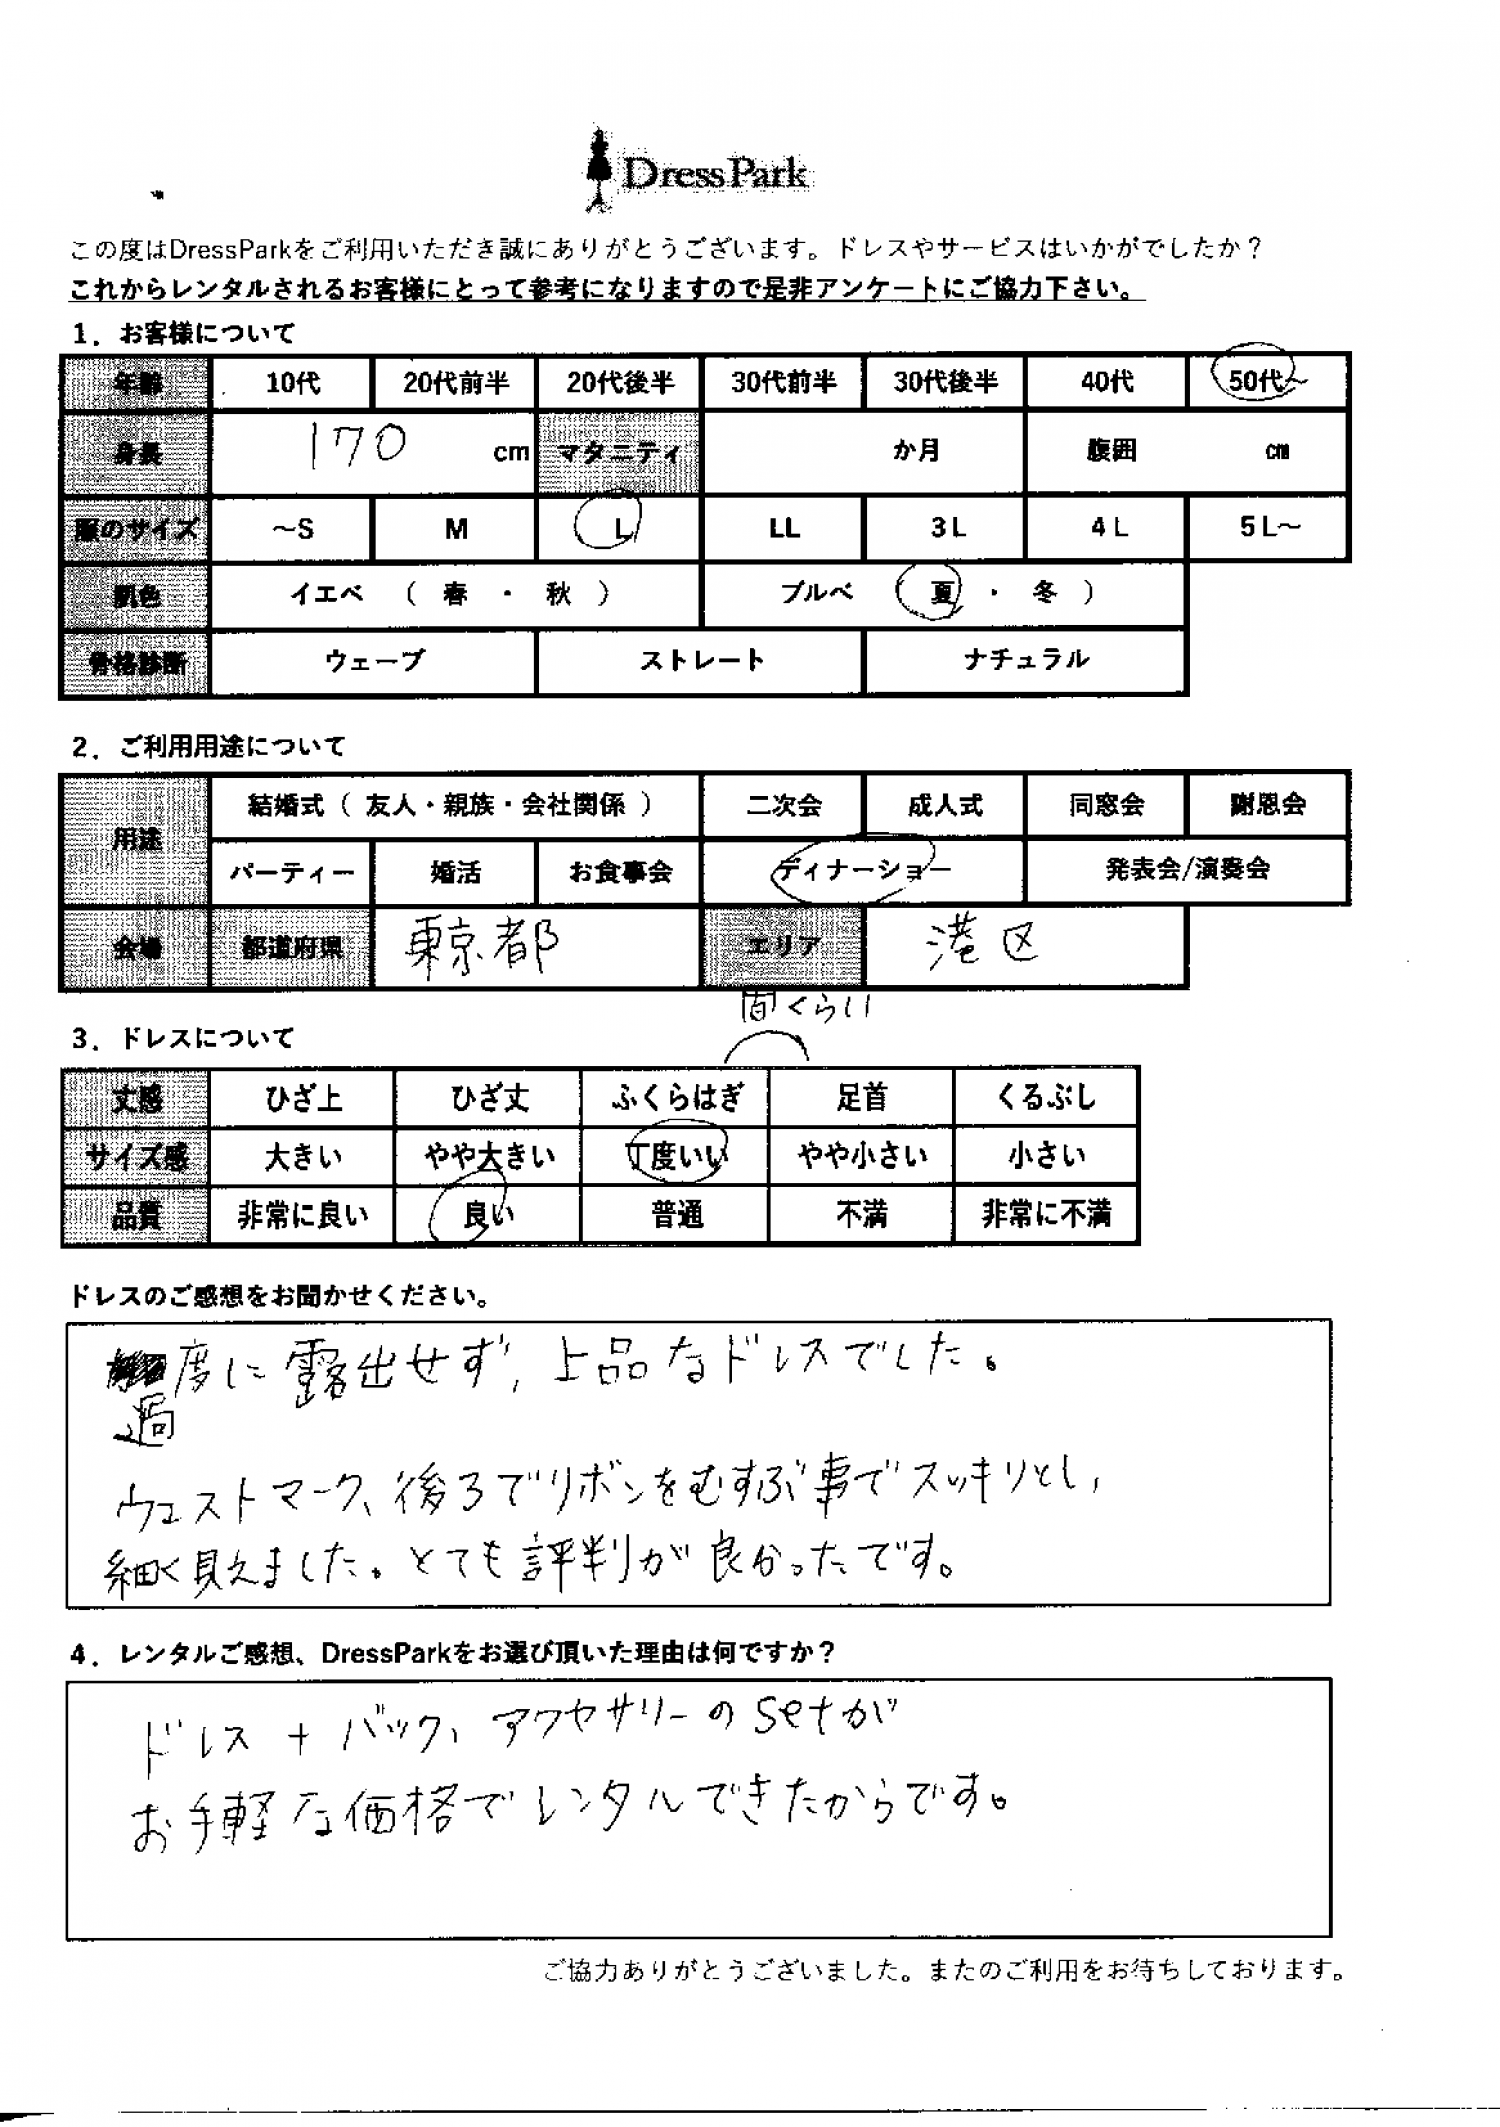 DressPark
この度はDressParkをご利用いただき誠にありがとうございます。ドレスやサービスはいかがでしたか？
これからレンタルされるお客様にとって参考になりますので是非アンケートにご協力下さい。
1．お客様について
年齢 10代 20代前半 20代後半 30代前半 30代後半 40代 50代～
身長 170 cm マタニティ か月 腹囲 cm
服のサイズ ～S M L LL 3L 4L 5L～
肌色 イエベ （ 春 ・ 秋 ） ブルベ （ 夏 ・ 冬 ）
骨格診断 ウェーブ ストレート ナチュラル
2．ご利用用途について
用途 結婚式（ 友人・親族・会社関係 ） 二次会 成人式 同窓会 謝恩会
パーティー 婚活 お食事会 ディナーショー 発表会/演奏会
会場 都道府県 東京都 エリア 港区
間くらい
3．ドレスについて
丈感 ひざ上 ひざ丈 ふくらはぎ 足首 くるぶし
サイズ感 大きい やや大きい 丁度いい やや小さい 小さい
品質 非常に良い 良い 普通 不満 非常に不満
ドレスのご感想をお聞かせください。
度に露出せず、上品なドレスでした。
過
ウエストマーク、後ろでリボンをむすぶ事でスッキリとし、
細く見えました。とても評判が良かったです。
4．レンタルご感想、DressParkをお選び頂いた理由は何ですか？
ドレス＋バック、アクセサリーのsetが
お手軽な価格でレンタルできたからです。
ご協力ありがとうございました。またのご利用をお待ちしております。